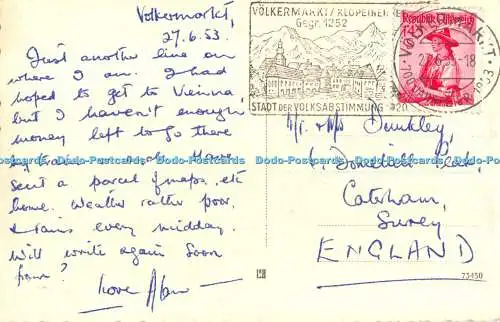 Volkermarkt,
27.6.53.
Just another line on
where I am. I had
hoped to get to Vienna,
but I haven't enough
money left to go there
by train & back. Have
sent a parcel of maps, etc
home. Weather rather poor,
& rains every midday.
Will write again soon
from?
Love Alan
VÖLKERMARKT / KLOPEINER
Gegr. 1252
STADT DER VOLKSABSTIMMUNG 1920
Republik Österreich
Mr. & Mrs Dunkley,
Caterham,
Surrey
ENGLAND
73450
Dodo-Postcards Dodo-Postcards Dodo-Postcards Dodo-Postcards Dodo-Postcards